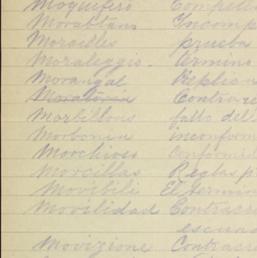 Moquifero Compelle
Morabtans Incomp
Moraclles prueba
Moraleggio. Armino
Morangal Replican
Moratoria Contrare
Morbillous fallo del
Morbonia inconform
Morchioso conformid
Morcillas Reglas p
Movibili El termin
Movilidad Contracc
escuad
Movizione Contrac